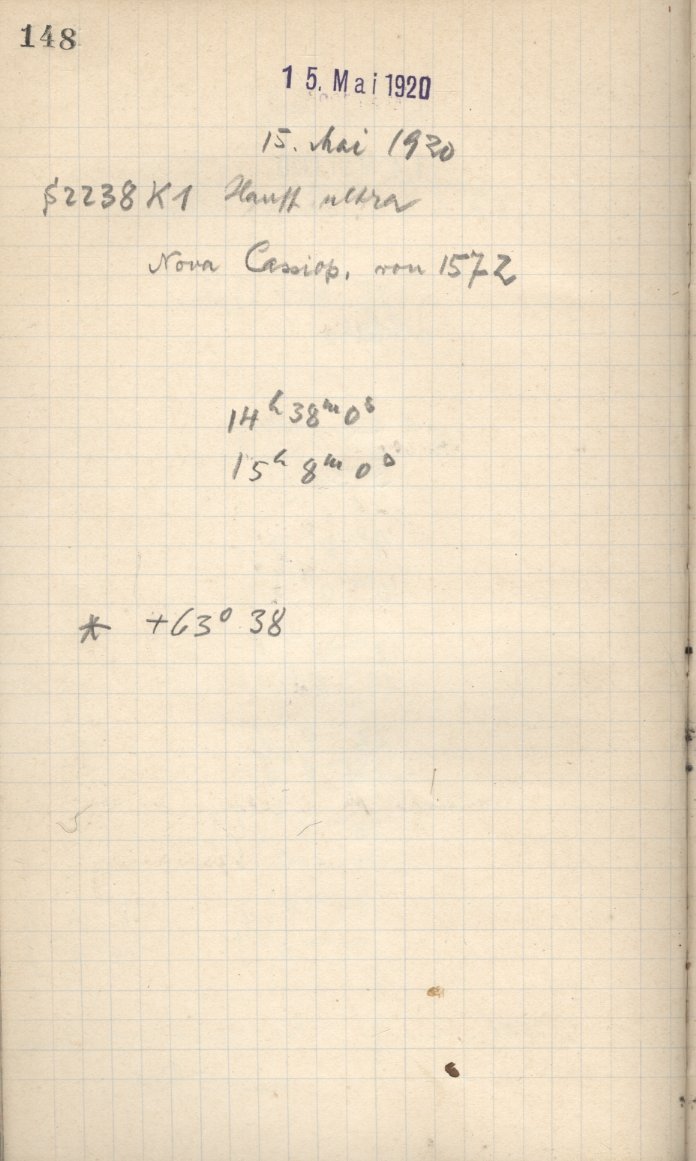 148
15. Mai 1920
15. Mai 1920
§2238 K1 Hauff ultra
Nova Cassiop. von 1572
14ʰ 38ᵐ 0ˢ
15ʰ 8ᵐ 0ˢ
* +63° 38